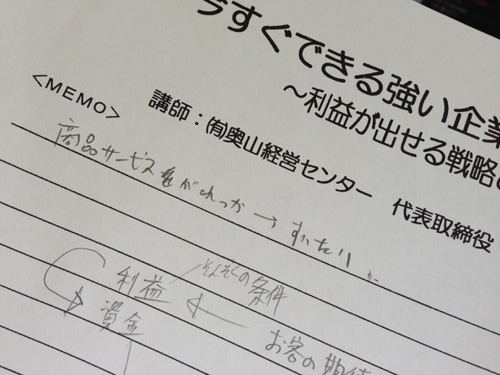 今すぐできる強い企業
～利益が出せる戦略の
講師：㈲奥山経営センター 代表取締役
<MEMO>
商品サービス →
利益 そんぞくの条件
資金
お客の期待